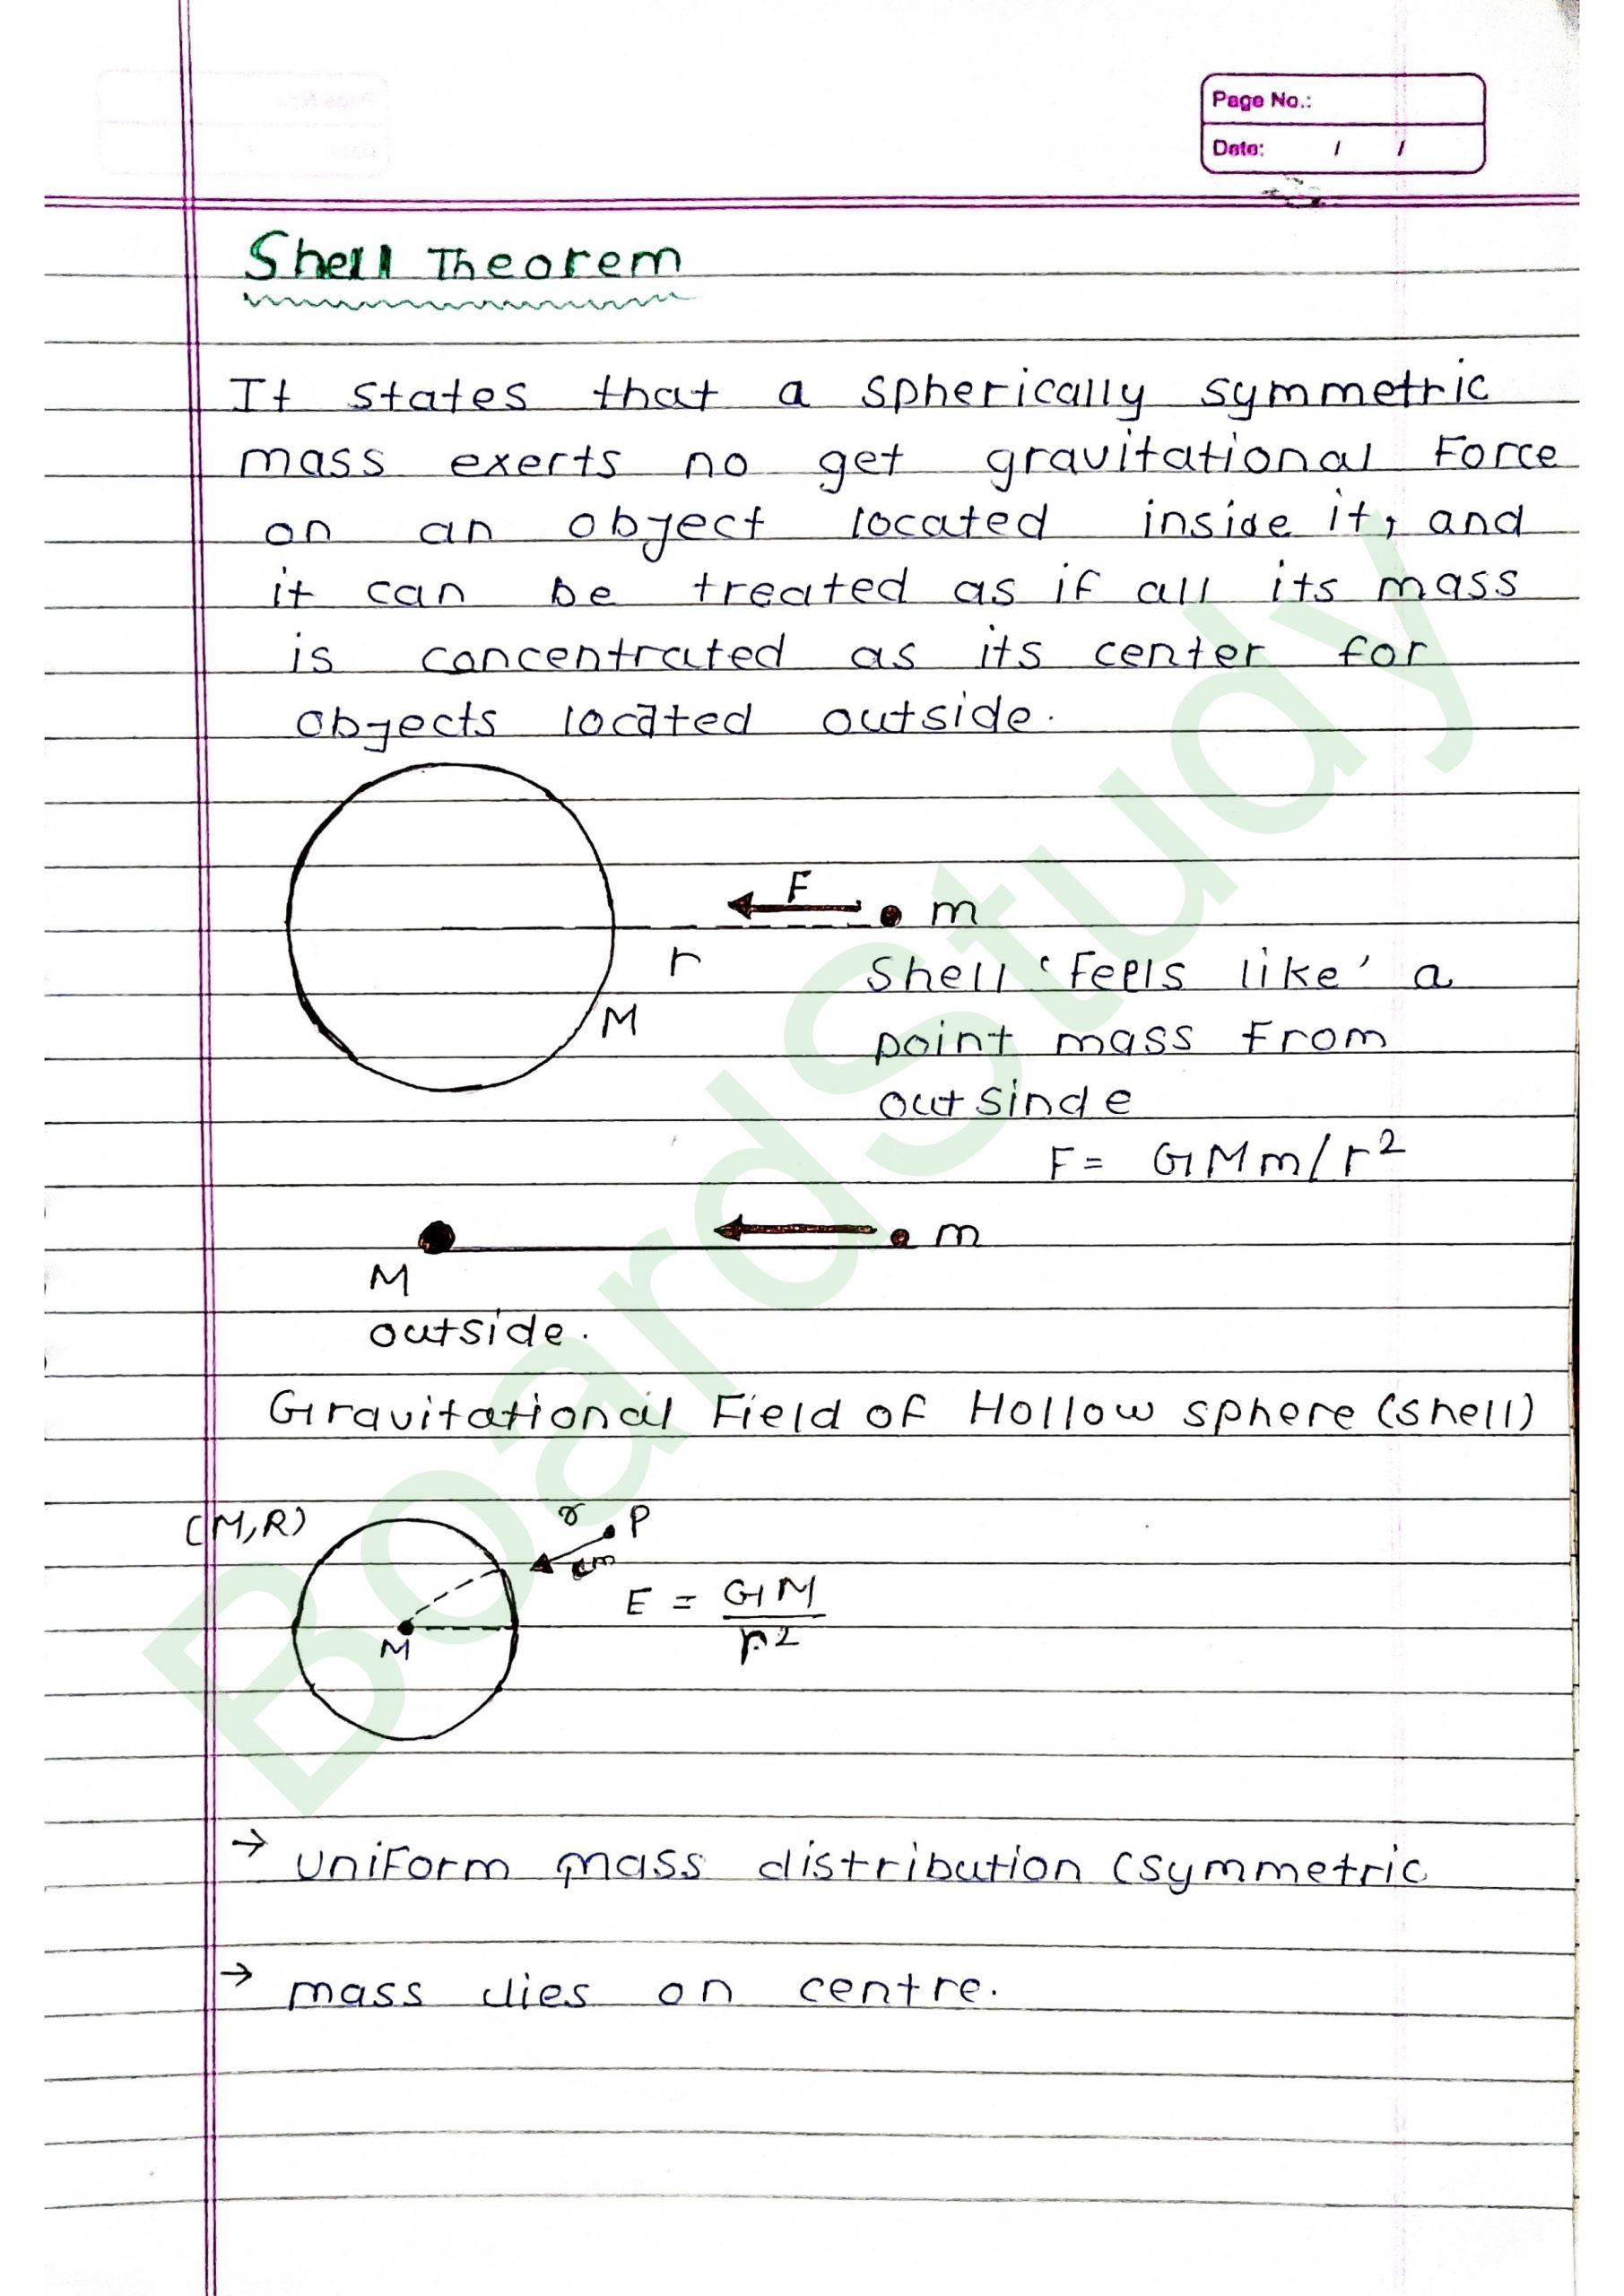 Page No.:
Date: / /
Shell Theorem
It states that a spherically symmetric
mass exerts no get gravitational Force
on an object located inside it, and
it can be treated as if all its mass
is concentrated as its center for
objects located outside.
F
m
r
M
Shell 'Feels like' a
point mass from
outsinde
F = GMm/r²
m
M
outside.
Gravitational Field of Hollow sphere (shell)
(M,R)
r P
M
E = GM
r²
→ uniform mass distribution (symmetric
→ mass dies on centre.
BoardStudy